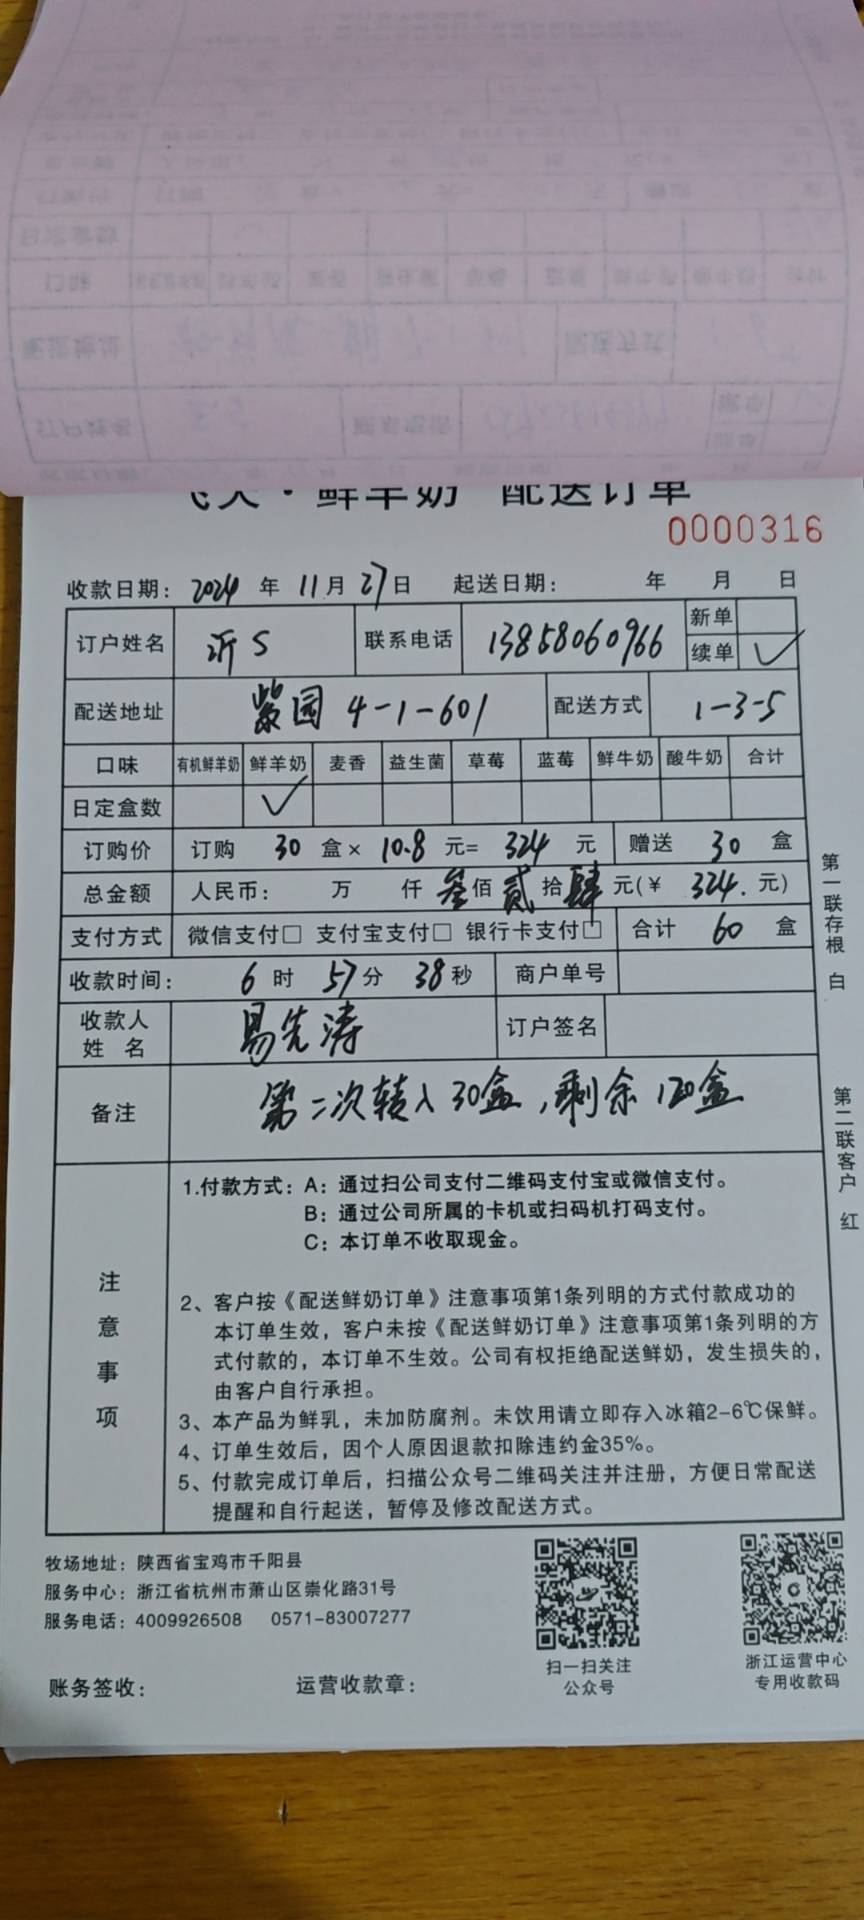 飞天·鲜羊奶 配送订单
0000316
收款日期: 2024 年 11月 27日 起送日期: 年 月 日
订户姓名 沂S 联系电话 13858060966 新单
续单 ✓
配送地址 紫园 4-1-601 配送方式 1-3-5
口味 有机鲜羊奶 鲜羊奶 麦香 益生菌 草莓 蓝莓 鲜牛奶 酸牛奶 合计
日定盒数 ✓
订购价 订购 30 盒× 10.8 元= 324 元 赠送 30 盒
总金额 人民币: 万 仟 叁佰 贰 拾 肆 元(¥ 324. 元)
支付方式 微信支付□ 支付宝支付□ 银行卡支付□ 合计 60 盒
收款时间: 6 时 57分 38秒 商户单号
收款人姓名 易先涛 订户签名
备注 第二次转入30盒,剩余120盒
注意事项
1.付款方式: A: 通过扫公司支付二维码支付宝或微信支付。
B: 通过公司所属的卡机或扫码机打码支付。
C: 本订单不收取现金。
2、客户按《配送鲜奶订单》注意事项第1条列明的方式付款成功的
本订单生效，客户未按《配送鲜奶订单》注意事项第1条列明的方
式付款的，本订单不生效。公司有权拒绝配送鲜奶，发生损失的，
由客户自行承担。
3、本产品为鲜乳，未加防腐剂。未饮用请立即存入冰箱2-6℃保鲜。
4、订单生效后，因个人原因退款扣除违约金35%。
5、付款完成订单后，扫描公众号二维码关注并注册，方便日常配送
提醒和自行起送，暂停及修改配送方式。
第一联存根 白
第二联客户 红
牧场地址: 陕西省宝鸡市千阳县
服务中心: 浙江省杭州市萧山区崇化路31号
服务电话: 4009926508 0571-83007277
扫一扫关注
公众号
浙江运营中心
专用收款码
账务签收: 运营收款章: